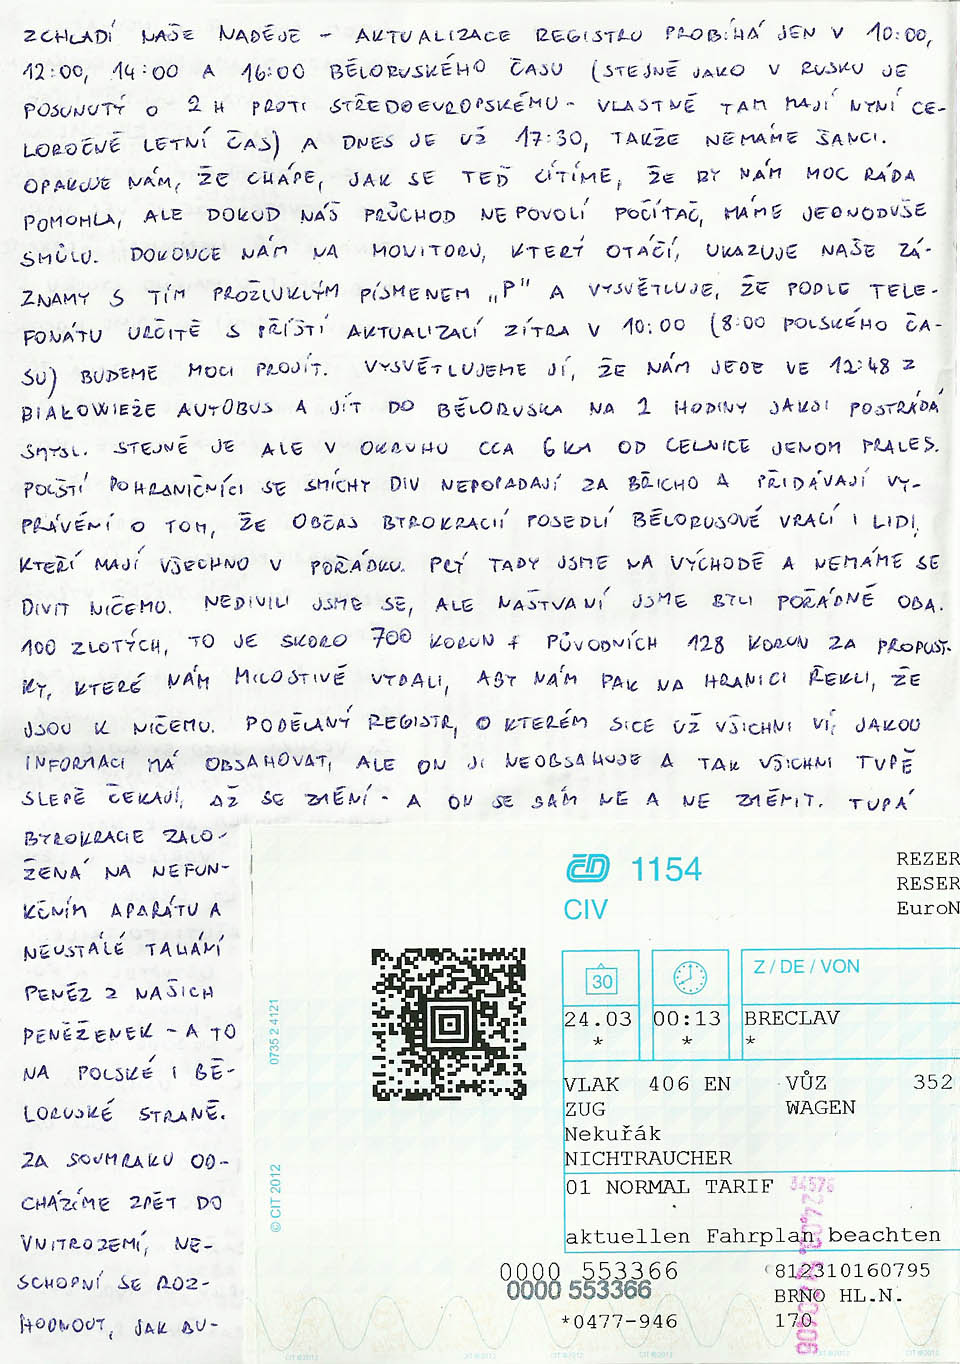 ZCHLADÍ NAŠE NADĚJE - AKTUALIZACE REGISTRU PROBÍHÁ JEN V 10:00,
12:00, 14:00 A 16:00 BĚLORUSKÉHO ČASU (STEJNĚ JAKO V RUSKU JE
POSUNUTÝ O 2 H PROTI STŘEDOEVROPSKÉMU - VLASTNĚ TAM MAJÍ NYNÍ CE-
LOROČNĚ LETNÍ ČAS) A DNES JE UŽ 17:30, TAKŽE NEMÁME ŠANCI.
OPAKUJE NÁM, ŽE CHÁPE, JAK SE TEĎ CÍTÍME, ŽE BY NÁM MOC RÁDA
POMOHLA, ALE DOKUD NÁŠ PRŮCHOD NEPOVOLÍ POČÍTAČ, MÁME JEDNODUŠE
SMŮLU. DOKONCE NÁM NA MONITORU, KTERÝ OTÁČÍ, UKAZUJE NAŠE ZÁ-
ZNAMY S TÍM PROŽLUKLÝM PÍSMENEM „P" A VYSVĚTLUJE, ŽE PODLE TELE-
FONÁTU URČITĚ S PŘÍŠTÍ AKTUALIZACÍ ZÍTRA V 10:00 (8:00 POLSKÉHO ČA-
SU) BUDEME MOCI PROJÍT. VYSVĚTLUJEME JÍ, ŽE NÁM JEDE VE 12:48 Z
BIAŁOWIEŻE AUTOBUS A JÍT DO BĚLORUSKA NA 2 HODINY JAKSI POSTRÁDÁ
SMYSL. STEJNĚ JE ALE V OKRUHU CCA 6 KM OD CELNICE JENOM PRALES.
POLŠTÍ POHRANIČNÍCI SE SMÍCHY DIV NEPOPADAJÍ ZA BŘICHO A PŘIDÁVAJÍ VY-
PRÁVĚNÍ O TOM, ŽE OBČAS BYROKRACIÍ POSEDLÍ BĚLORUSOVÉ VRACÍ I LIDI,
KTEŘÍ MAJÍ VŠECHNO V POŘÁDKU. PRÝ TADY JSME NA VÝCHODĚ A NEMÁME SE
DIVIT NIČEMU. NEDIVILI JSME SE, ALE NAŠTVANÍ JSME BYLI POŘÁDNĚ OBA.
100 ZLOTÝCH, TO JE SKORO 700 KORUN + PŮVODNÍCH 128 KORUN ZA PROPUST-
KY, KTERÉ NÁM MILOSTIVĚ VYDALI, ABY NÁM PAK NA HRANICI ŘEKLI, ŽE
JSOU K NIČEMU. PODĚLANÝ REGISTR, O KTERÉM SICE UŽ VŠICHNI VÍ, JAKOU
INFORMACI MÁ OBSAHOVAT, ALE ON JI NEOBSAHUJE A TAK VŠICHNI TUPĚ
SLEPĚ ČEKAJÍ, AŽ SE ZMĚNÍ - A ON SE SÁM NE A NE ZMĚNIT. TUPÁ
BYROKRACIE ZALO-
ŽENÁ NA NEFUN-
KČNÍM APARÁTU A
NEUSTÁLÉ TAHÁNÍ
PENĚZ Z NAŠICH
PENĚŽENEK - A TO
NA POLSKÉ I BĚ-
LORUSKÉ STRANĚ.
ZA SOUMRAKU OD-
CHÁZÍME ZPĚT DO
VNITROZEMÍ, NE-
SCHOPNÍ SE ROZ-
HODNOUT, JAK BU-
ČD 1154
CIV
REZER
RESER
EuroN
30
Z / DE / VON
24.03 00:13 BRECLAV
* * *
VLAK 406 EN VŮZ 352
ZUG WAGEN
Nekuřák
NICHTRAUCHER
01 NORMAL TARIF
34576
aktuellen Fahrplan beachten
0000 553366 812310160795
0000 553366 BRNO HL.N.
*0477-946 170
0735 2 4121
© CIT 2012